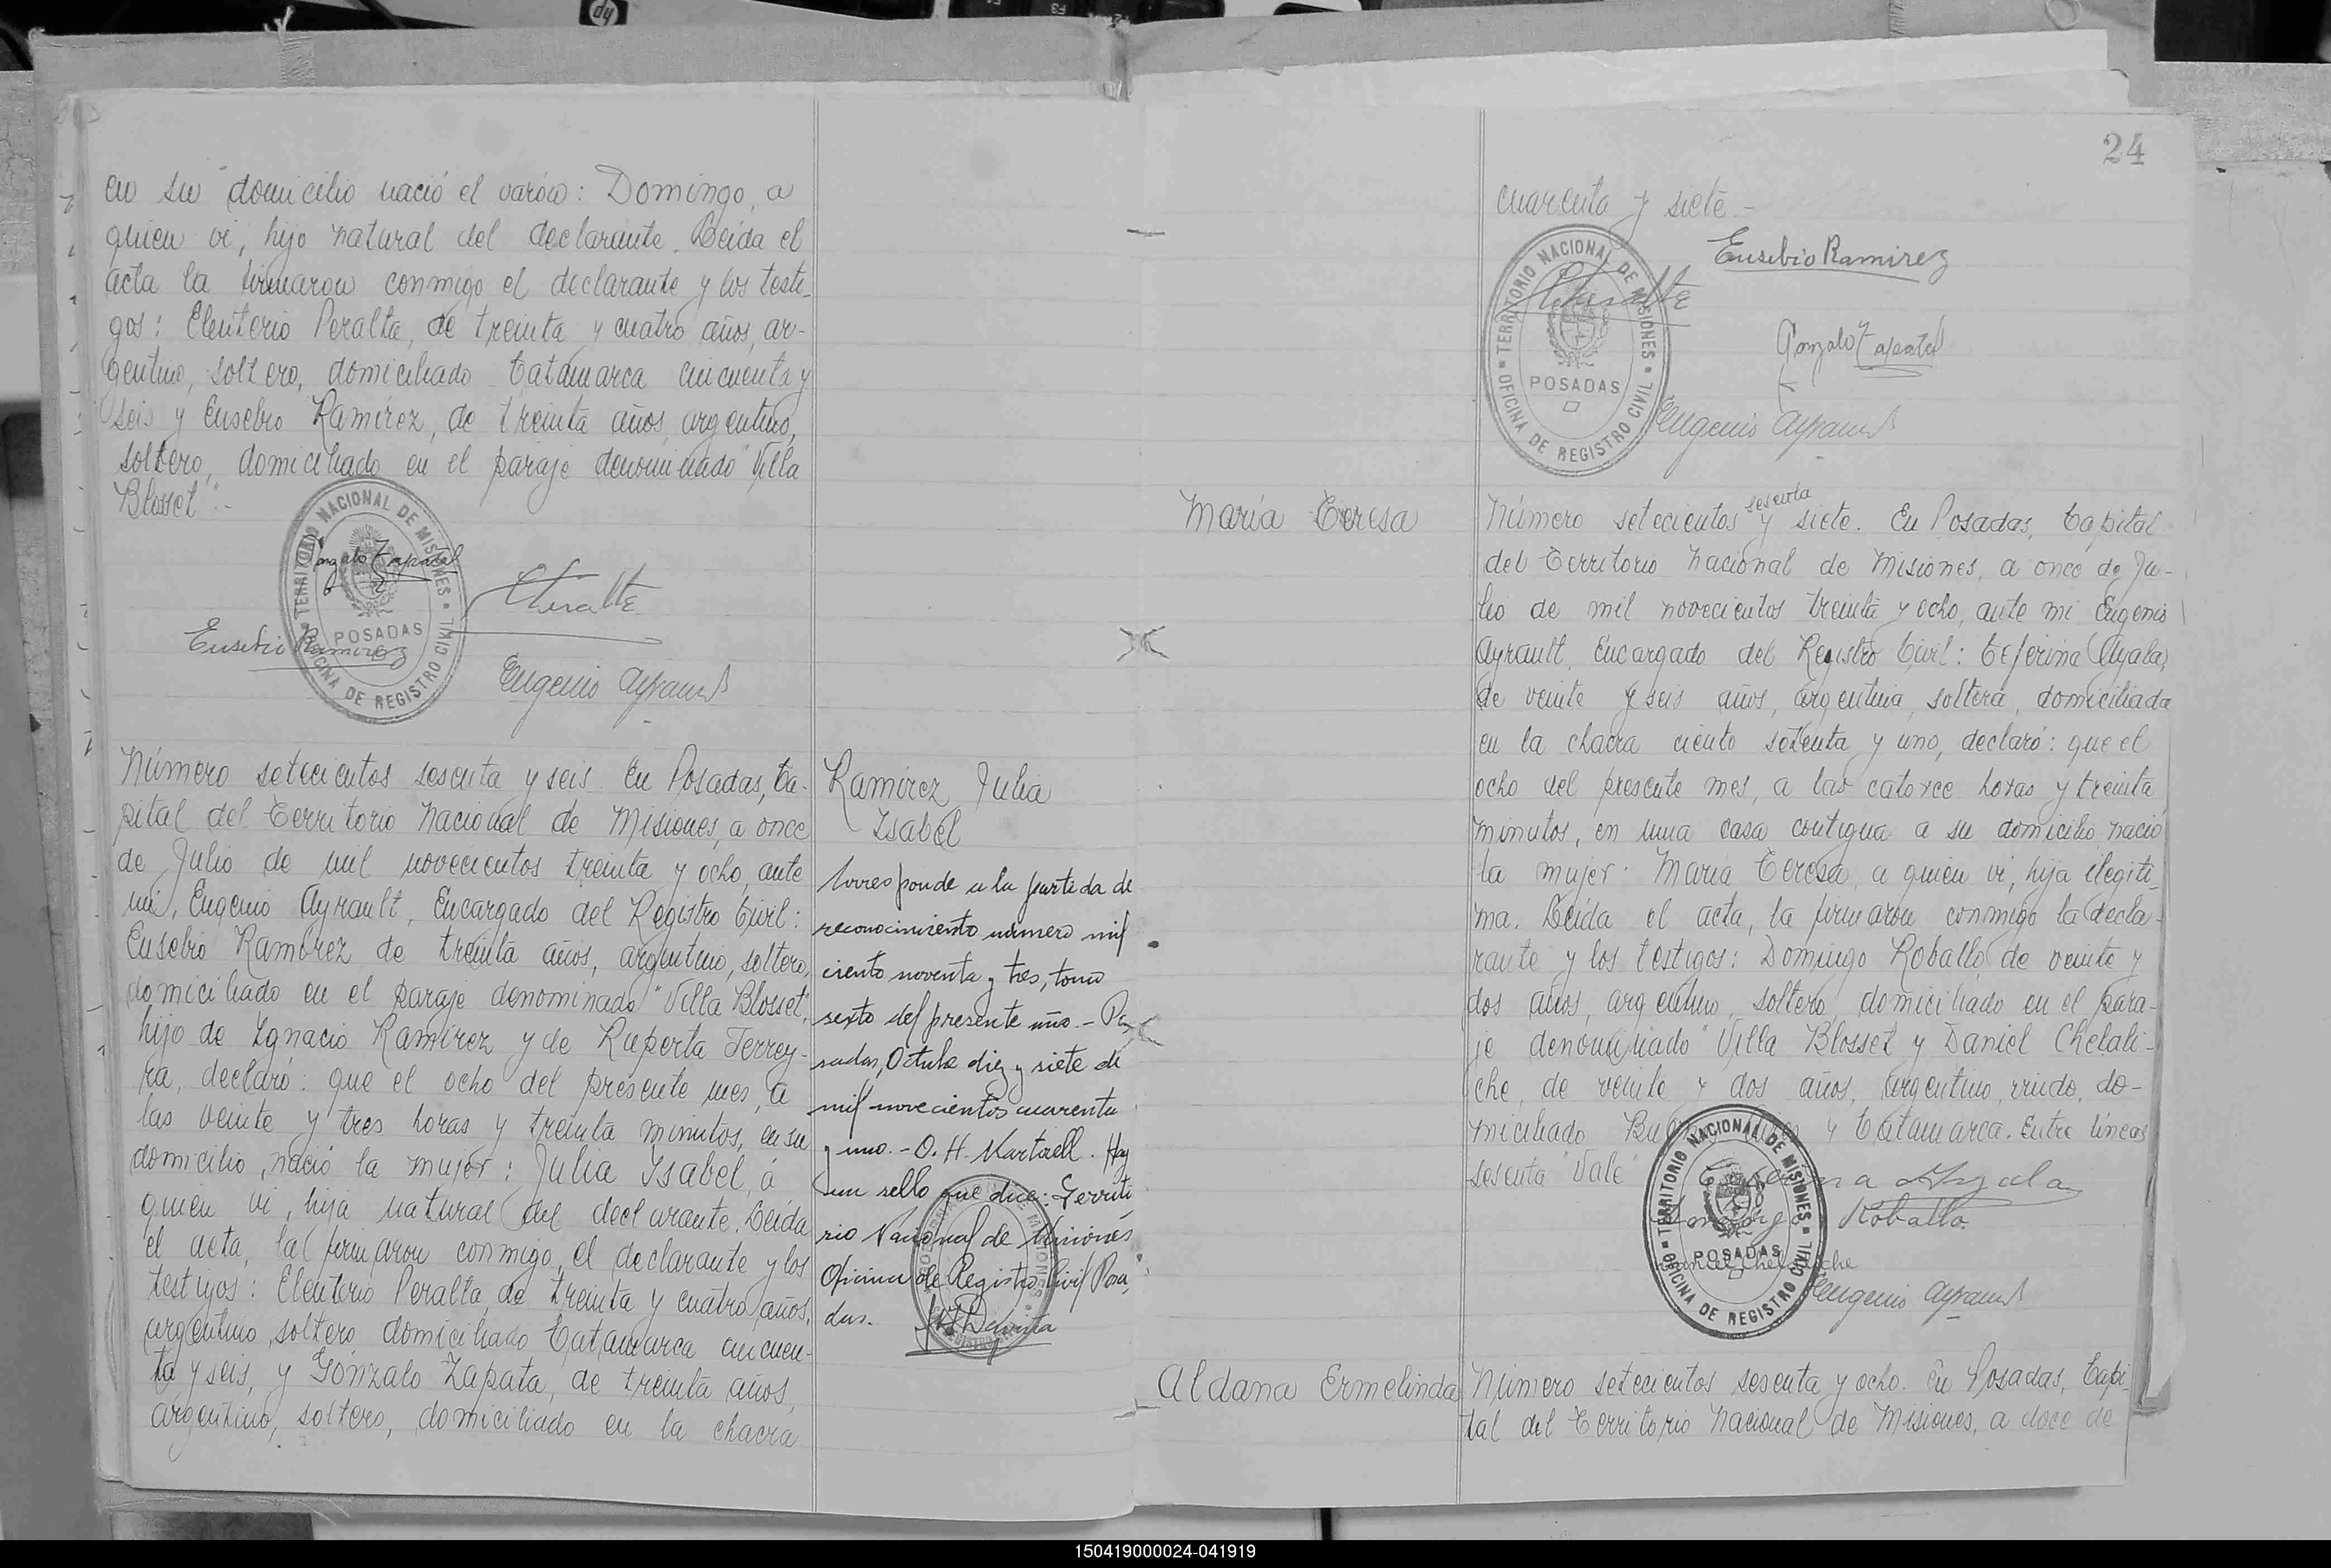 en su domicilio nació el varón: Domingo, a
quien vi, hijo natural del declarante. Leída el
acta la firmaron conmigo el declarante y los testi-
gos: Eleuterio Peralta, de treinta y cuatro años, ar-
gentino, soltero, domiciliado Catamarca cincuenta y
seis y Eusebio Ramírez, de treinta años, argentino,
soltero, domiciliado en el paraje denominado "Villa
Blosset".-
TERRITORIO NACIONAL DE MISIONES
OFICINA DE REGISTRO CIVIL
POSADAS
Gonzalo Zapata
Eusebio Ramirez
Eugenio Ayrault
Número setecientos sesenta y seis. En Posadas, Ca-
pital del Territorio Nacional de Misiones, a once
de Julio de mil novecientos treinta y ocho, ante
mí, Eugenio Ayrault, Encargado del Registro Civil:
Eusebio Ramírez de treinta años, argentino, soltero,
domiciliado en el paraje denominado "Villa Blosset",
hijo de Ignacio Ramírez y de Ruperta Ferrey-
ra, declaró: que el ocho del presente mes, a
las veinte y tres horas y treinta minutos, en su
domicilio, nació la mujer: Julia Isabel, á
quien vi, hija natural del declarante. Leída
el acta, la firmaron conmigo el declarante y los
testigos: Eleuterio Peralta, de treinta y cuatro años,
argentino, soltero, domiciliado Catamarca cincuen-
ta y seis, y Gonzalo Zapata, de treinta años,
argentino, soltero, domiciliado en la chacra
Ramírez Julia
Isabel
Corresponde a la partida de
reconocimiento número mil
ciento noventa y tres, tomo
sexto del presente año.- Po-
sadas, Octubre diez y siete de
mil novecientos cuarenta
y uno.- O. H. Martorell. Hay
un sello que dice: Territo
rio Nacional de Misiones
Oficina de Registro Civil Posa
das.
24
cuarenta y siete.-
Eusebio Ramirez
TERRITORIO NACIONAL DE MISIONES
OFICINA DE REGISTRO CIVIL
POSADAS
Gonzalo Zapata
Eugenio Ayrault
María Teresa
sesenta
Número setecientos y siete. En Posadas, Capital
del Territorio Nacional de Misiones, a once de Ju-
lio de mil novecientos treinta y ocho, ante mi Eugenio
Ayrault, Encargado del Registro Civil: Ceferina Ayala,
de veinte y seis años, argentina, soltera, domiciliada
en la chacra ciento setenta y uno, declaró: que el
ocho del presente mes, a las catorce horas y treinta
minutos, en una casa contigua a su domicilio, nació
la mujer: María Teresa, a quien vi, hija ilegíti-
ma. Leída el acta, la firmaron conmigo la decla-
rante y los testigos: Domingo Roballo de veinte y
dos años, argentino, soltero, domiciliado en el para-
je denominado "Villa Blosset y Daniel Chelali-
che, de veinte y dos años, argentino, viudo, do-
miciliado y Catamarca. Entre líneas
sesenta "Vale"
Ceferina Ayala
Domingo Roballo.
TERRITORIO NACIONAL DE MISIONES
OFICINA DE REGISTRO CIVIL
POSADAS
Daniel Chelaliche
Eugenio Ayrault
Aldana Ermelinda
Número setecientos sesenta y ocho. En Posadas, Capi-
tal del Territorio Nacional de Misiones, a doce de
150419000024-041919